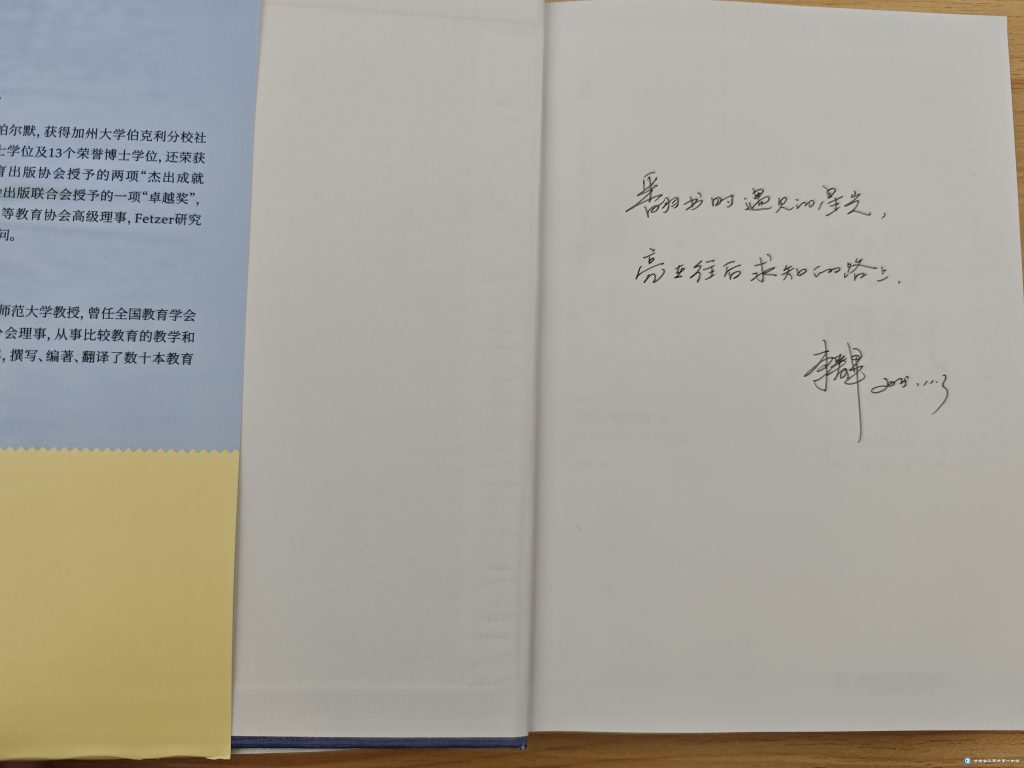 伯尔默, 获得加州大学伯克利分校社
士学位及13个荣誉博士学位, 还荣获
育出版协会授予的两项“杰出成就
会出版联合会授予的一项“卓越奖”,
等教育协会高级理事, Fetzer研究
问。
师范大学教授, 曾任全国教育学会
分会理事, 从事比较教育的教学和
, 撰写、编著、翻译了数十本教育
翻书时遇见的星光,
亮在往后求知的路上.
李